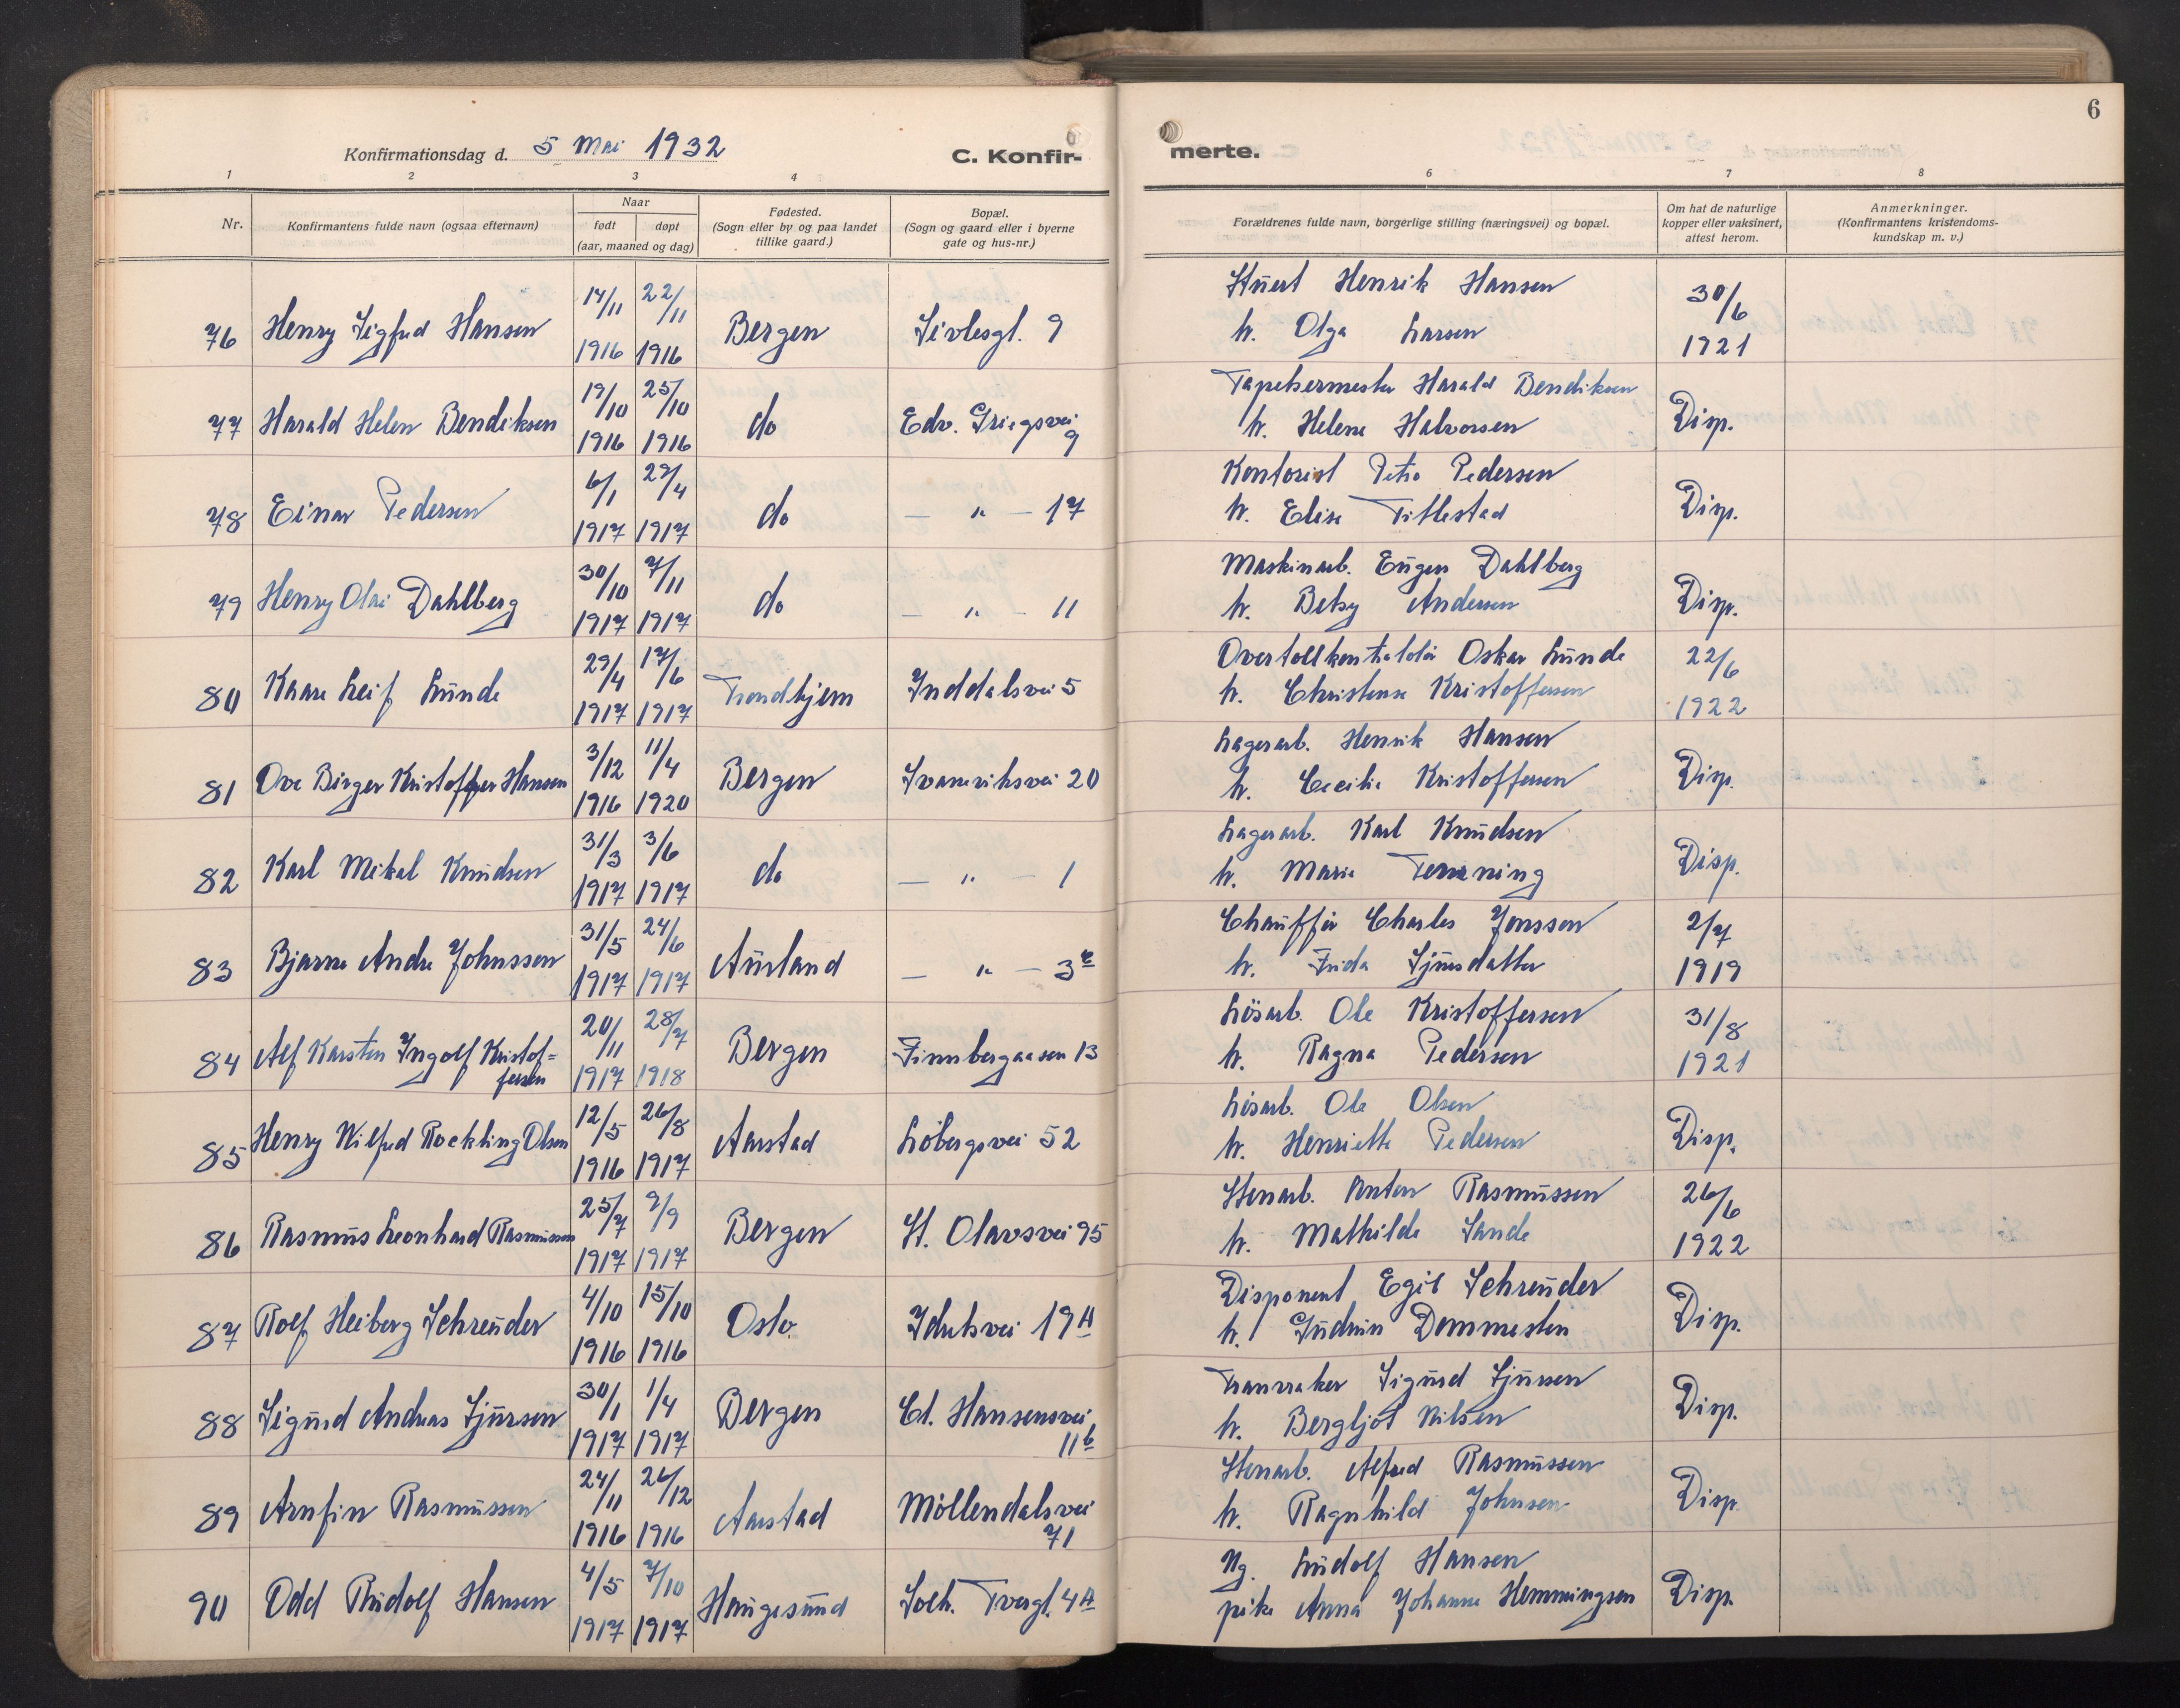 Konfirmationsdag d. 5 Mai 1932
C. Konfir-
merte.
6
1 2 3 4 6 7 8
Nr.
Konfirmantens fulde navn (ogsaa efternavn)
Naar
født døpt
(aar, maaned og dag)
Fødested.
(Sogn eller by og paa landet
tillike gaard.)
Bopæl.
(Sogn og gaard eller i byerne
gate og hus-nr.)
Forældrenes fulde navn, borgerlige stilling (næringsvei) og bopæl.
Om hat de naturlige
kopper eller vaksinert,
attest herom.
Anmerkninger.
(Konfirmantens kristendoms-
kundskap m. v.)
14/11 22/11 Stuert Henrik Hansen 30/6
76 Henry Sigfred Hansen Bergen Sivlesgt. 9
1916 1916 h. Olga Larsen 1921
19/10 25/10 Tapetsermester Harald Bendiksen
77 Harald Helen Bendiksen do Edv. Griegsvei Disp.
1916 1916 9 h. Helene Halvorsen
6/1 29/4 Kontorist Petra Pedersen
78 Einar Pedersen do — " — 17 Disp.
1917 1917 h. Elise Titlestad
30/10 7/11 Maskinarb. Eugen Dahlberg
79 Henry Olai Dahlberg do — " — 11 Disp.
1917 1917 h. Betsy Andersen
29/4 17/6 Overtollkontrollør Oskar Lunde 22/6
80 Kaare Leif Lunde Trondhjem Inddalsvei 5
1917 1917 h. Christense Kristoffersen 1922
3/12 11/4 Lagerarb. Henrik Hansen
81 Ove Birger Kristoffer Hansen Bergen Svaneviksvei 20 Disp.
1916 1920 h. Cecilie Kristoffersen
31/3 3/6 Lagerarb. Karl Knudsen
82 Karl Mikal Knudsen do — " — 1 Disp.
1917 1917 h. Marie
31/5 24/6 Chauffør Charles Jonsson 2/7
83 Bjarne Andre Johnsson Aurland — " — 3
1917 1917 h. Frida Sjursdatter 1919
20/11 28/7 Løsarb. Ole Kristoffersen 31/8
84 Alf Karsten Ingolf Kristof=
fersen Bergen Finnbergaasen 13
1917 1918 h. Ragna Pedersen 1921
12/5 26/8 Løsarb. Ole Olsen
85 Henry Wilfred Rockling Olsen Aarstad Løbergsvei 52 Disp.
1916 1917 h. Henriette Pedersen
25/7 9/9 Stenarb. Anton Rasmussen 26/6
86 Rasmus Leonhard Rasmussen Bergen St. Olavsvei 95
1917 1917 h. Mathilde Sande 1922
4/10 15/10 Disponent Egil Schreuder
87 Rolf Heiberg Schreuder Oslo. Idretsvei 19A Disp.
1916 1916 h. Gudrun Dommesten
30/1 1/4 Tranvraker Sigurd Sjursen
88 Sigurd Andreas Sjursen Bergen Cl. Hansensvei Disp.
1917 1917 11b h. Bergljot Nilsen
24/11 26/12 Stenarb. Alfred Rasmussen
89 Arnfin Rasmussen Aarstad Møllendalsvei Disp.
1916 1916 71 h. Ragnhild Johnsen
4/5 7/10 Ug. Ludolf Hansen
90 Odd Rudolf Hansen Haugesund Solh. Tvergt. 4A Disp.
1917 1917 pike Anna Johanne Hemmingsen